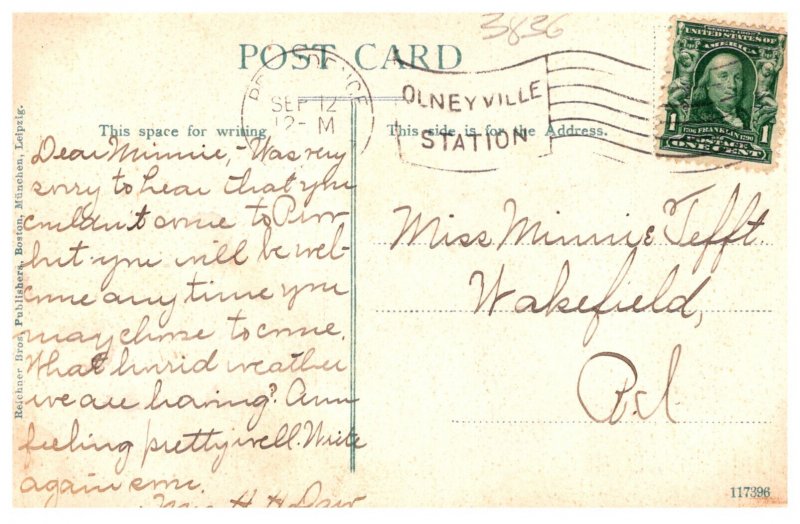 3836
POST CARD
PROVIDENCE
SEP 12
12- M
OLNEYVILLE
STATION
SERIES 1902
UNITED STATES OF
AMERICA
1
1706 FRANKLIN 1790
1
POSTAGE
ONE CENT
This space for writing
This side is for the Address.
Dear Minnie,- Was very
sorry to hear that you
couldn't come to Prov
but you will be wel-
come any time you
may chose to come.
What horrid weather
we are having? Am
feeling pretty well. Write
again soon.
Mrs H H
Miss Minnie Tefft.
Wakefield,
R.I.
Reichner Bros. Publishers, Boston, München, Leipzig.
117396